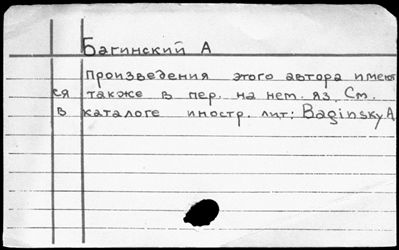 Багинский А
Произведения этого автора имеют
ся также в пер. на нем. яз. См.
в каталоге иностр. лит: Baginsky A